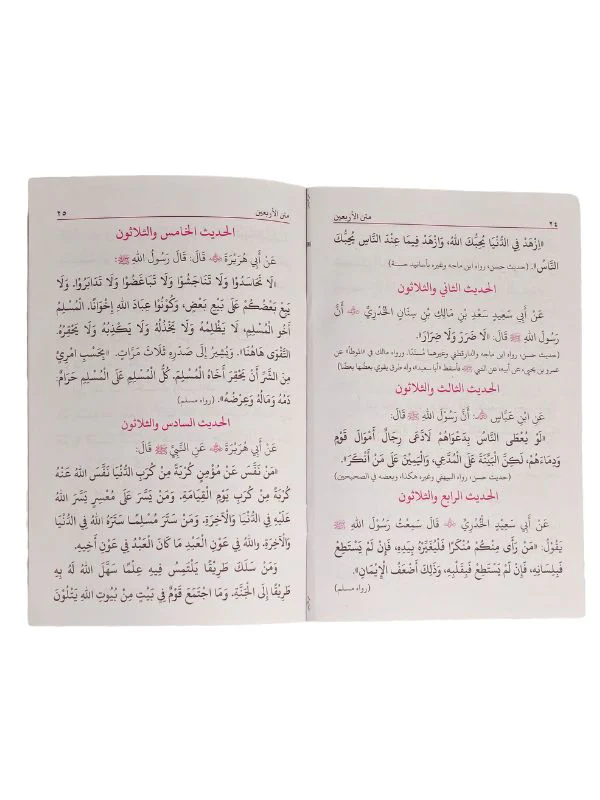 ٢٤
متن الأربعين
«ازْهَدْ فِي الدُّنْيَا يُحِبَّكَ اللهُ، وَازْهَدْ فِيمَا عِنْدَ النَّاسِ يُحِبَّكَ
النَّاسُ». (حديث حسن، رواه ابن ماجه وغيره بأسانيد حسنة)
الحديث الثاني والثلاثون
عَنْ أَبِي سَعِيدٍ سَعْدِ بْنِ مَالِكِ بْنِ سِنَانٍ الْخُدْرِيِّ ﵁ أَنَّ
رَسُولَ اللهِ ﷺ قَالَ: «لَا ضَرَرَ وَلَا ضِرَارَ».
(حديث حسن، رواه ابن ماجه والدارقطني وغيرهما مُسنَدًا. ورواه مالك في «الموطأ» عن
عمرو بن يحيى، عن أبيه، عن النبي ﷺ فأسقط «أبا سعيد» وله طرق يقوي بعضها بعضًا)
الحديث الثالث والثلاثون
عَنِ ابْنِ عَبَّاسٍ ﵄: أَنَّ رَسُولَ اللهِ ﷺ قَالَ:
«لَوْ يُعْطَى النَّاسُ بِدَعْوَاهُمْ لَادَّعَى رِجَالٌ أَمْوَالَ قَوْمٍ
وَدِمَاءَهُمْ، لَكِنِ الْبَيِّنَةُ عَلَى الْمُدَّعِي، وَالْيَمِينُ عَلَى مَنْ أَنْكَرَ».
(حديث حسن، رواه البيهقي وغيره هكذا، وبعضه في الصحيحين)
الحديث الرابع والثلاثون
عَنْ أَبِي سَعِيدٍ الْخُدْرِيِّ ﵁ قَالَ سَمِعْتُ رَسُولَ اللهِ ﷺ
يَقُولُ: «مَنْ رَأَى مِنْكُمْ مُنْكَرًا فَلْيُغَيِّرْهُ بِيَدِهِ، فَإِنْ لَمْ يَسْتَطِعْ
فَبِلِسَانِهِ، فَإِنْ لَمْ يَسْتَطِعْ فَبِقَلْبِهِ، وَذَلِكَ أَضْعَفُ الْإِيمَانِ».
(رواه مسلم)
متن الأربعين
٢٥
الحديث الخامس والثلاثون
عَنْ أَبِي هُرَيْرَةَ ﵁ قَالَ: قَالَ رَسُولُ اللهِ ﷺ:
«لَا تَحَاسَدُوا وَلَا تَنَاجَشُوا وَلَا تَبَاغَضُوا وَلَا تَدَابَرُوا، وَلَا
يَبِعْ بَعْضُكُمْ عَلَى بَيْعِ بَعْضٍ، وَكُونُوا عِبَادَ اللهِ إِخْوَانًا. الْمُسْلِمُ
أَخُو الْمُسْلِمِ، لَا يَظْلِمُهُ وَلَا يَخْذُلُهُ وَلَا يَكْذِبُهُ وَلَا يَحْقِرُهُ.
التَّقْوَى هَاهُنَا». وَيُشِيرُ إِلَى صَدْرِهِ ثَلَاثَ مَرَّاتٍ. «بِحَسْبِ امْرِئٍ
مِنَ الشَّرِّ أَنْ يَحْقِرَ أَخَاهُ الْمُسْلِمَ. كُلُّ الْمُسْلِمِ عَلَى الْمُسْلِمِ حَرَامٌ:
دَمُهُ وَمَالُهُ وَعِرْضُهُ». (رواه مسلم)
الحديث السادس والثلاثون
عَنْ أَبِي هُرَيْرَةَ ﵁ عَنِ النَّبِيِّ ﷺ قَالَ:
«مَنْ نَفَّسَ عَنْ مُؤْمِنٍ كُرْبَةً مِنْ كُرَبِ الدُّنْيَا نَفَّسَ اللهُ عَنْهُ
كُرْبَةً مِنْ كُرَبِ يَوْمِ الْقِيَامَةِ. وَمَنْ يَسَّرَ عَلَى مُعْسِرٍ يَسَّرَ اللهُ
عَلَيْهِ فِي الدُّنْيَا وَالْآخِرَةِ. وَمَنْ سَتَرَ مُسْلِمًا سَتَرَهُ اللهُ فِي الدُّنْيَا
وَالْآخِرَةِ. وَاللهُ فِي عَوْنِ الْعَبْدِ مَا كَانَ الْعَبْدُ فِي عَوْنِ أَخِيهِ.
وَمَنْ سَلَكَ طَرِيقًا يَلْتَمِسُ فِيهِ عِلْمًا سَهَّلَ اللهُ لَهُ بِهِ
طَرِيقًا إِلَى الْجَنَّةِ. وَمَا اجْتَمَعَ قَوْمٌ فِي بَيْتٍ مِنْ بُيُوتِ اللهِ يَتْلُونَ